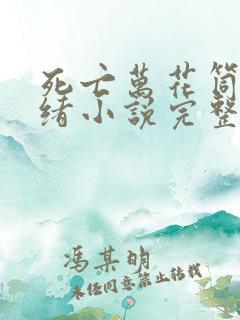 死亡萬花筒
緒小說完整
馮某明
未经同意禁止转载